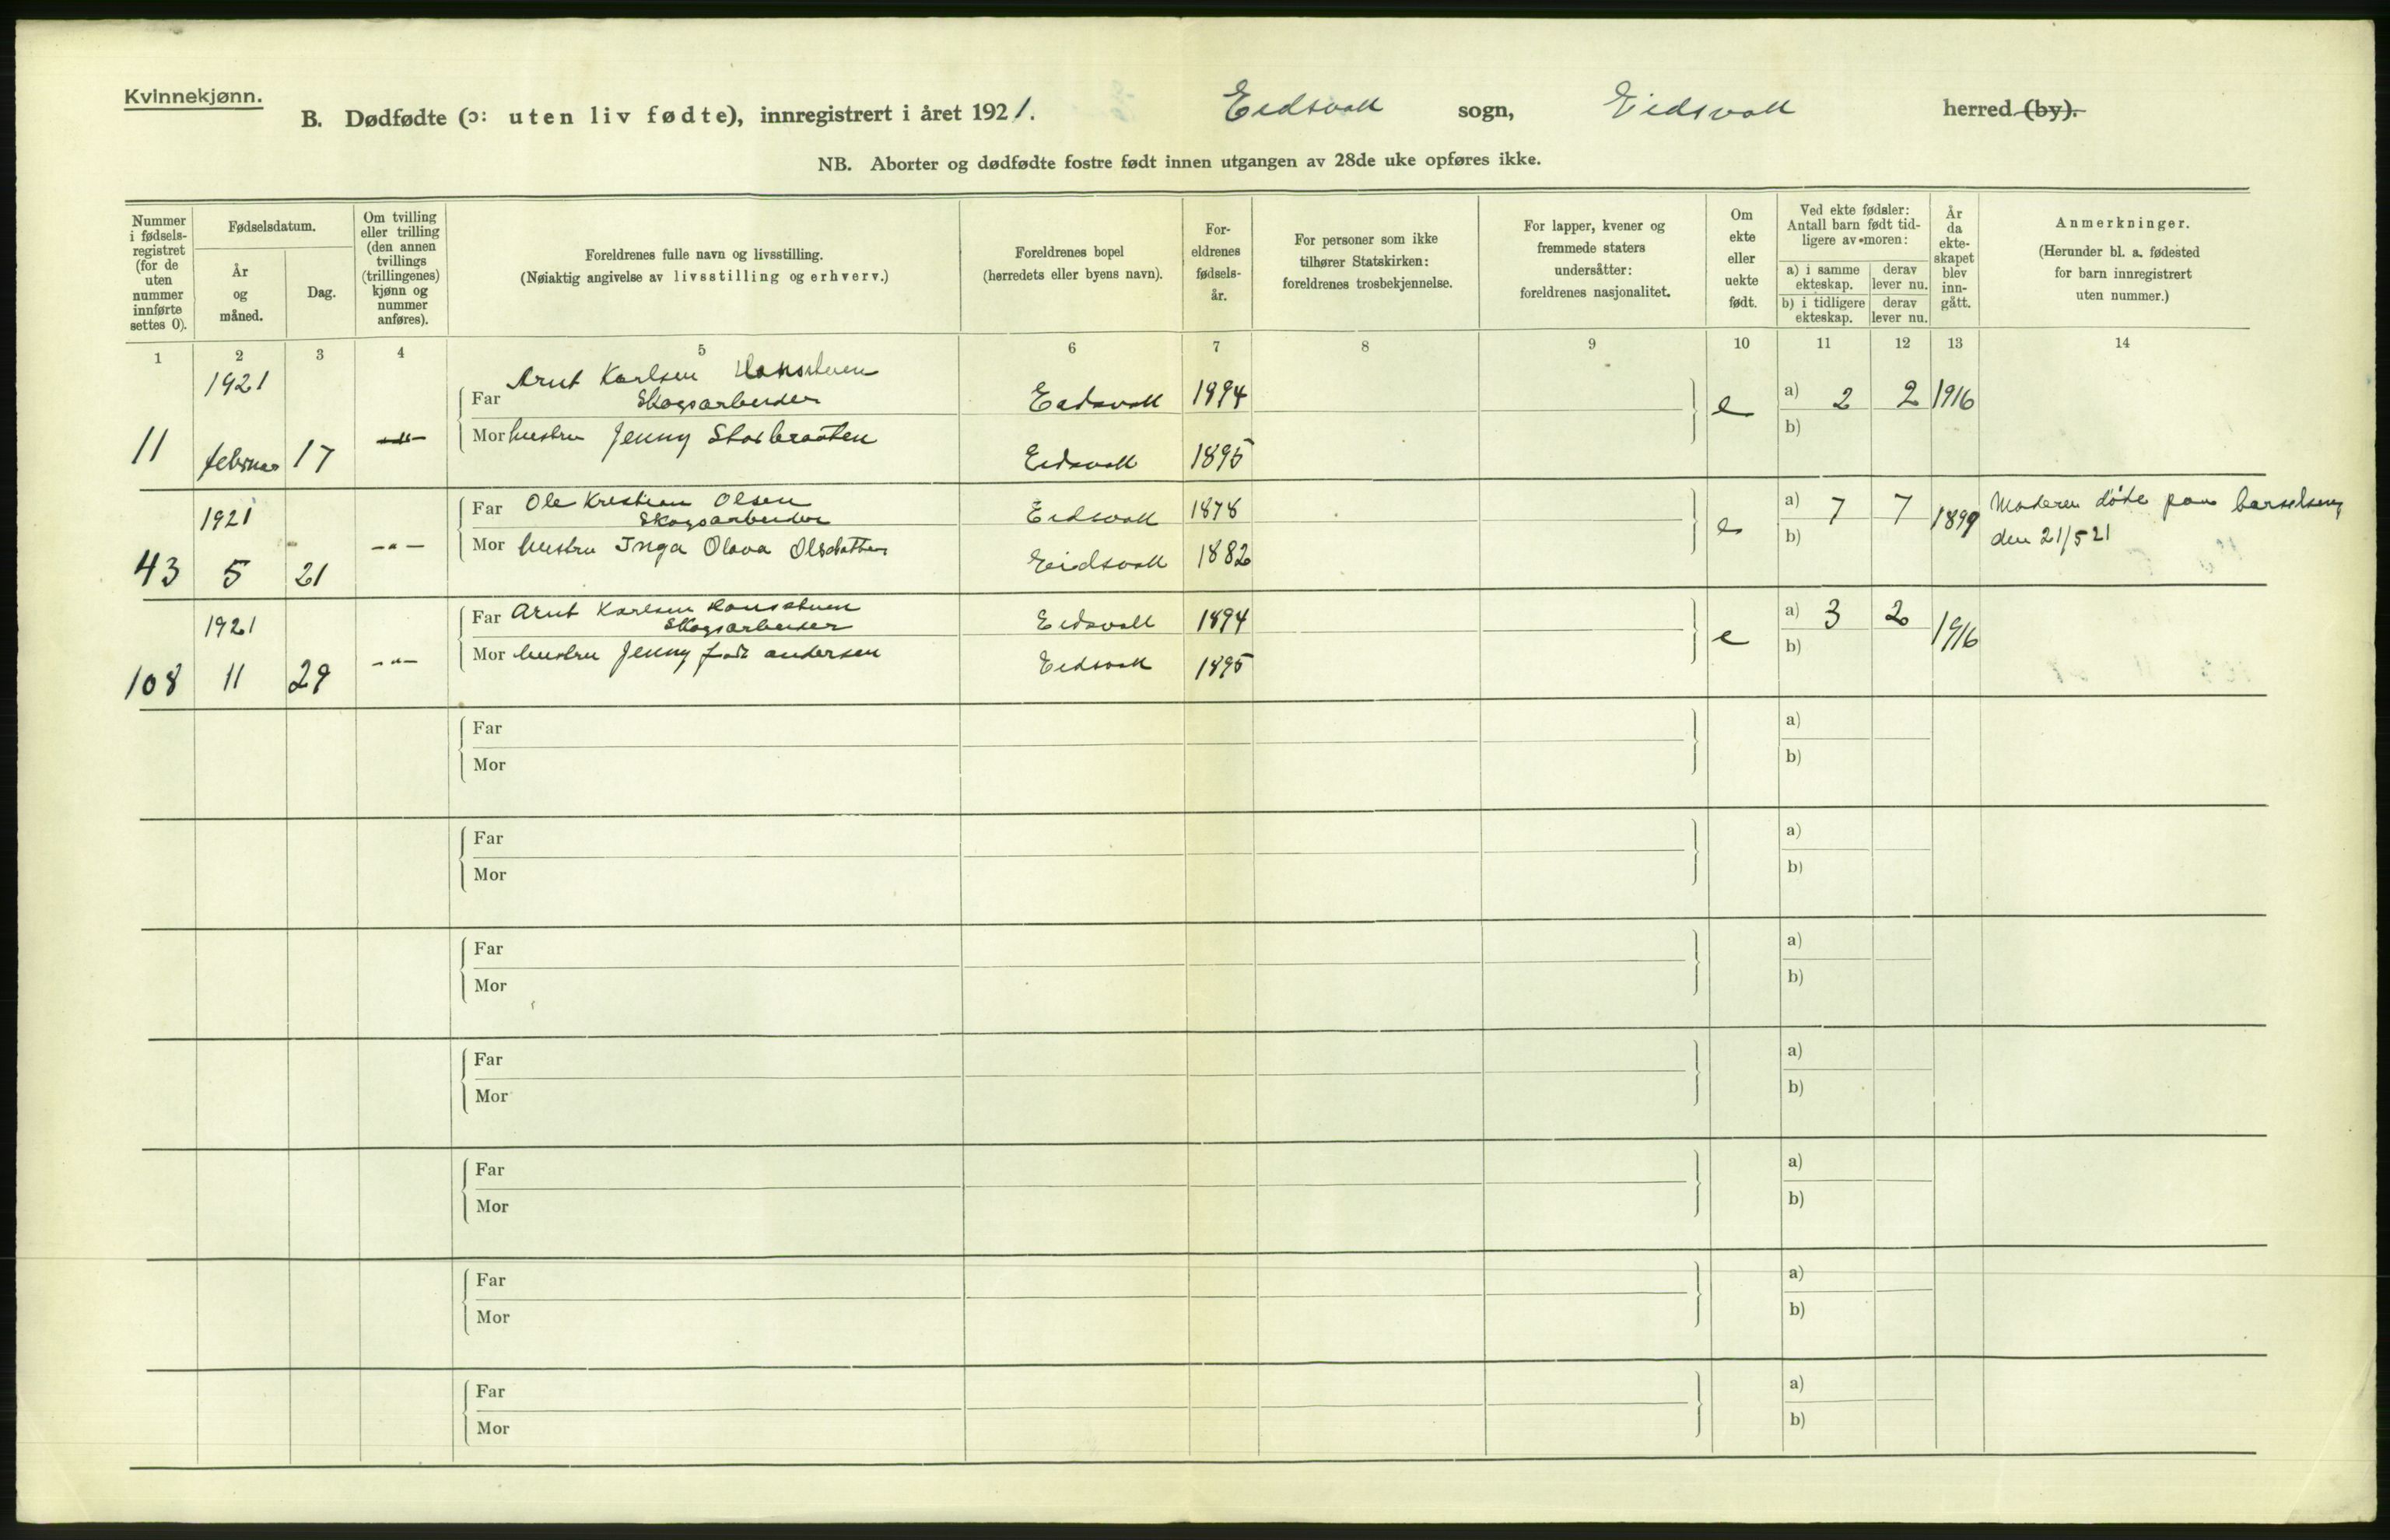 Kvinnekjønn.
B. Dødfødte (ɔ: uten liv fødte), innregistrert i året 1921. Eidsvoll sogn, Eidsvoll herred (by).
NB. Aborter og dødfødte fostre født innen utgangen av 28de uke opføres ikke.
Nummer i fødselsregistret (for de uten nummer innførte settes 0).
Fødselsdatum.
År og måned.
Dag.
Om tvilling eller trilling (den annen tvillings (trillingenes) kjønn og nummer anføres).
Foreldrenes fulle navn og livsstilling.
(Nøiaktig angivelse av livsstilling og erhverv.)
Foreldrenes bopel
(herredets eller byens navn).
Foreldrenes fødselsår.
For personer som ikke tilhører Statskirken: foreldrenes trosbekjennelse.
For lapper, kvener og fremmede staters undersåtter: foreldrenes nasjonalitet.
Om ekte eller uekte født.
Ved ekte fødsler: Antall barn født tidligere av moren:
a) i samme ekteskap. derav lever nu.
b) i tidligere ekteskap. derav lever nu.
År da ekteskapet blev inngått.
Anmerkninger.
(Herunder bl. a. fødested for barn innregistrert uten nummer.)
1 2 3 4 5 6 7 8 9 10 11 12 13 14
1921 Far Arnt Karlsen Hansstuen
Skogsarbeider Eidsvoll 1994 e a) 2 2 1916
11 februar 17 -"- Mor hustru Jenny Storbraaten Eidsvoll 1895 b)
1921 Far Ole Kristian Olsen
Skogsarbeider Eidsvoll 1878 e a) 7 7 1899 Moderen døde paa barselseng
43 5 21 -"- Mor hustru Inga Olava Olsdatter Eidsvoll 1882 b) den 21/5 21
1921 Far Arnt Karlsen Hansstuen
Skogsarbeider Eidsvoll 1894 e a) 3 2 1916
108 11 29 -"- Mor hustru Jenny født andersen Eidsvoll 1895 b)
Far a)
Mor b)
Far a)
Mor b)
Far a)
Mor b)
Far a)
Mor b)
Far a)
Mor b)
Far a)
Mor b)
Far a)
Mor b)